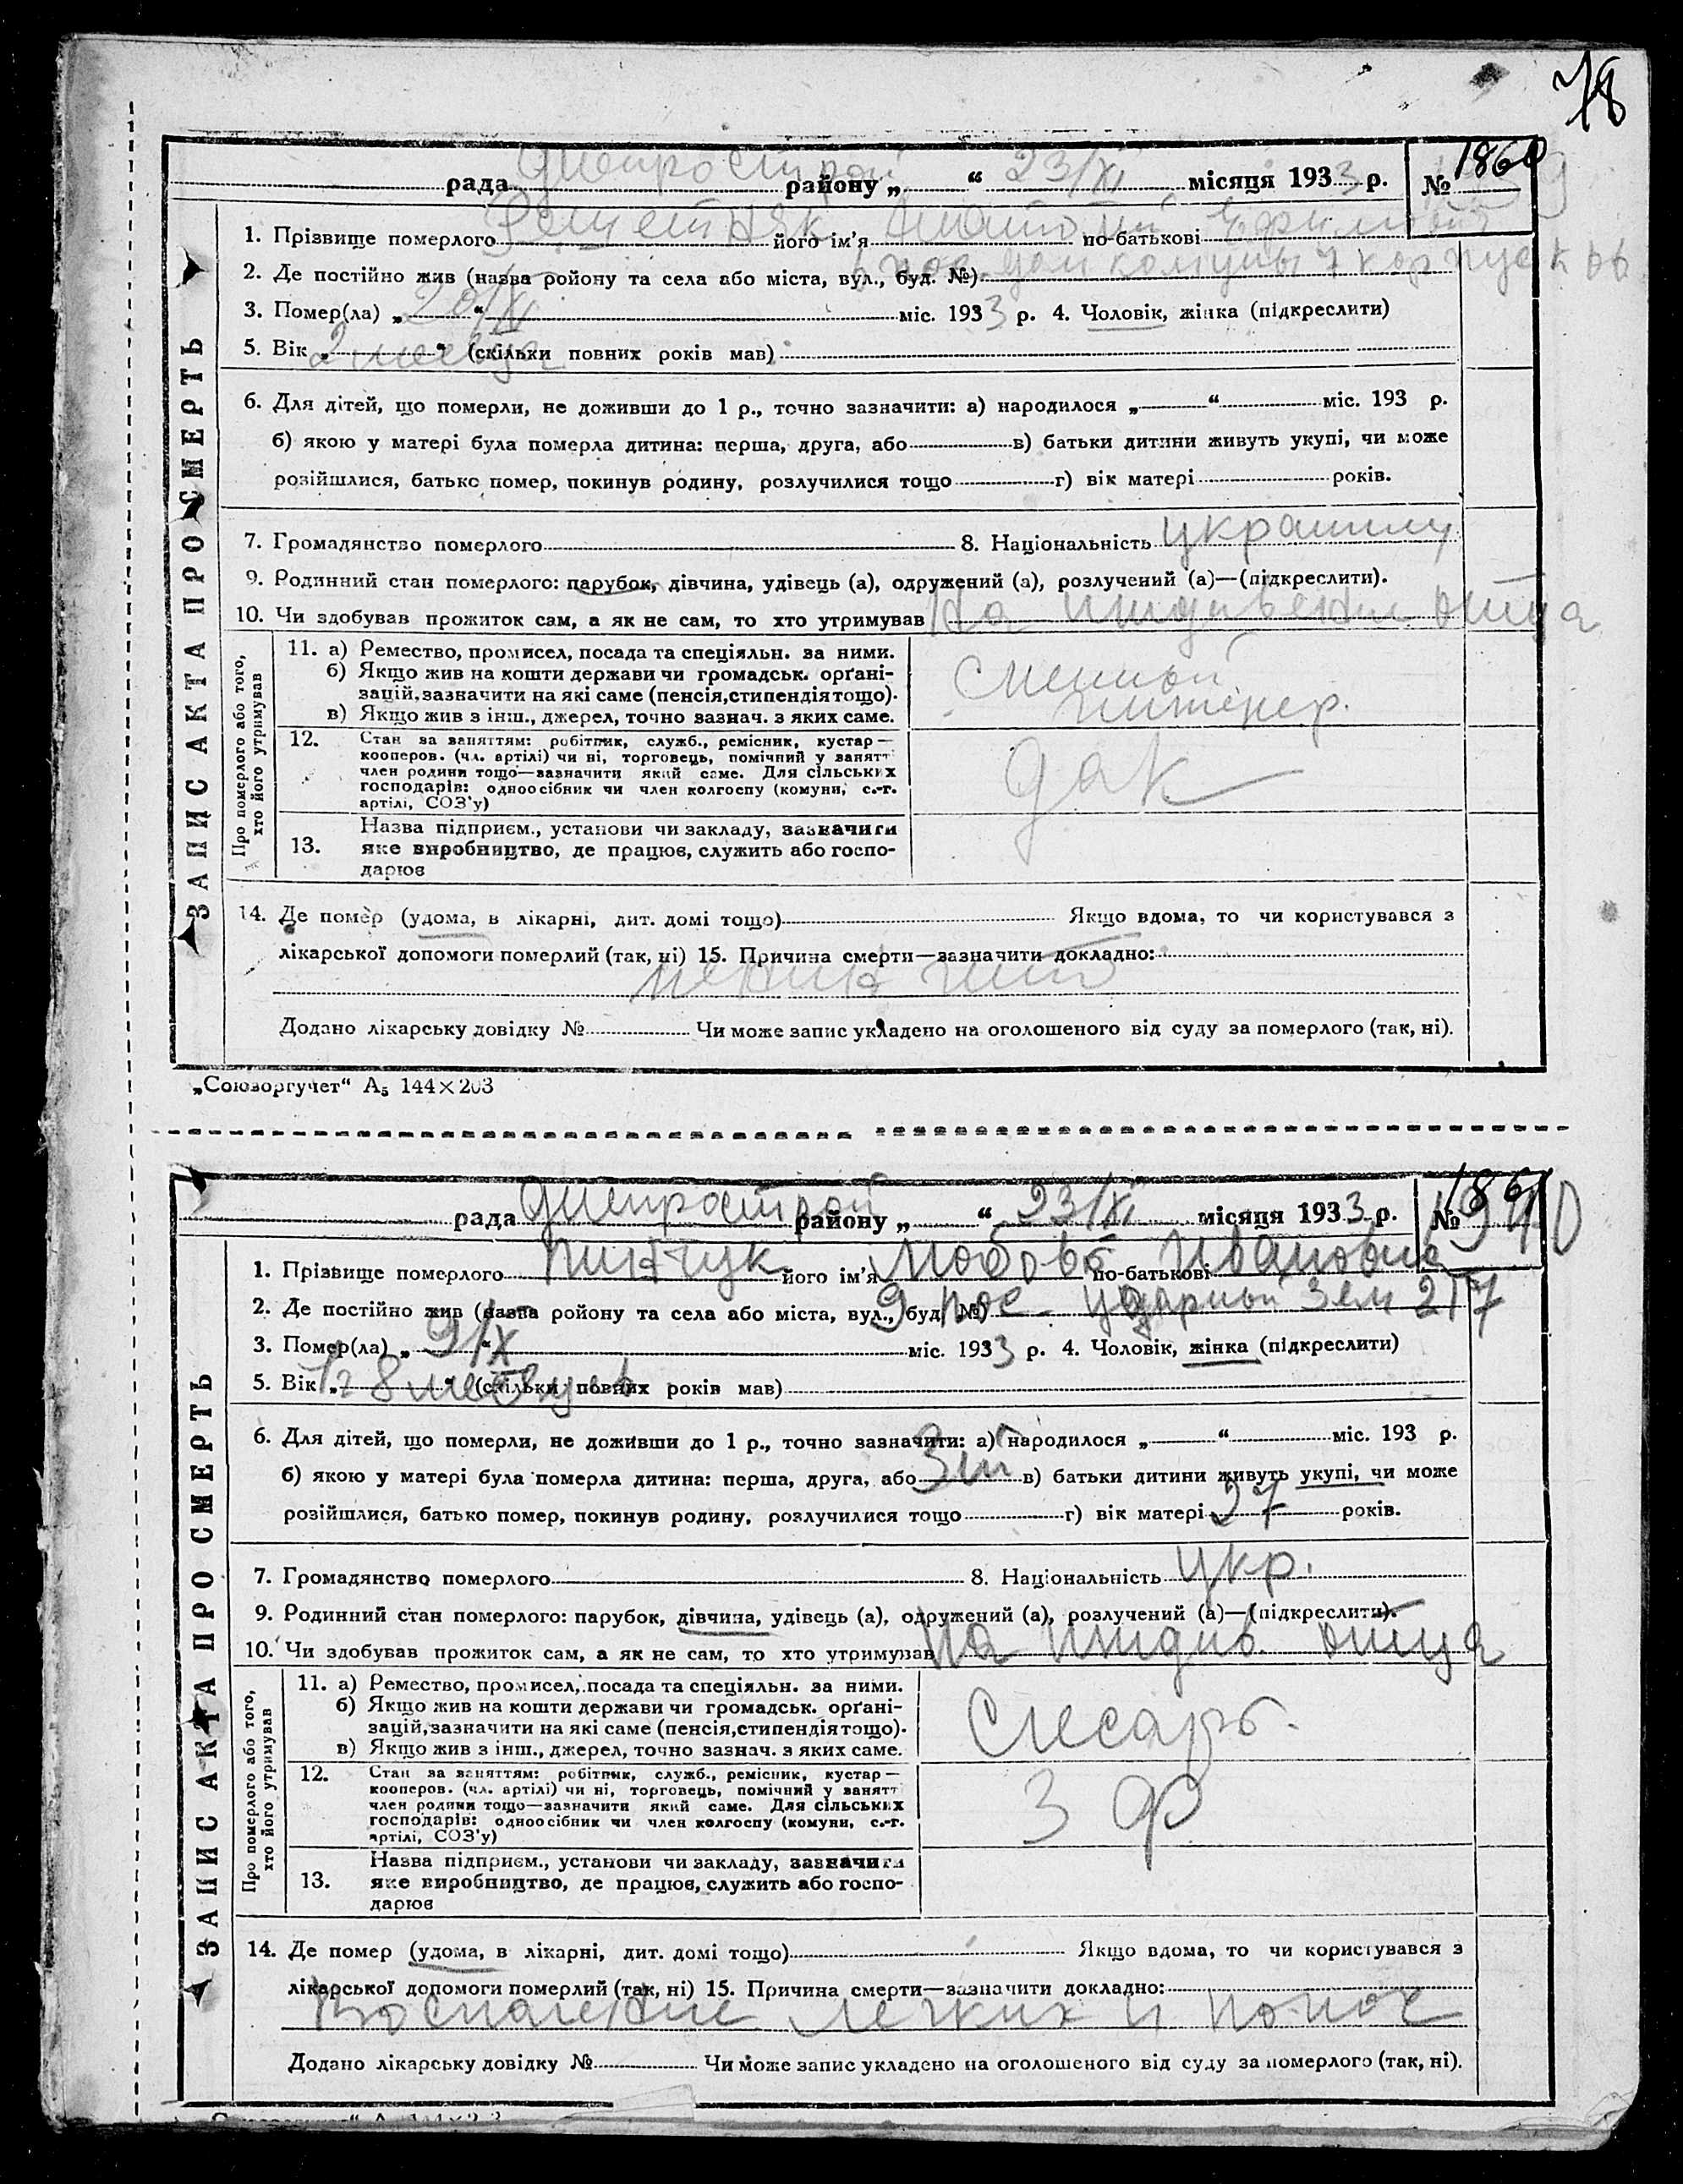 78
Днепрострой 23/XI 1860
рада района „ “ місяця 1933 р. №
1. Прізвище померлого Решетняк його ім’я Анатолий по-батькові
2. Де постійно жив (назва ройону та села або міста, вул., буд. №) 6 пос. дом комуны 7 корпус к
3. Помер(ла) „20/XI“ міс. 1933 р. 4. Чоловік, жінка (підкреслити)
5. Вік „2 месяца“ (скільки повних років мав)
6. Для дітей, що померли, не доживши до 1 р., точно зазначити: а) народилося „ “ міс. 193 р.
б) якою у матері була померла дитина: перша, друга, або в) батьки дитини живуть укупі, чи може
розійшлися, батько помер, покинув родину, розлучилися тощо г) вік матері років.
7. Громадянство померлого 8. Національність
9. Родинний стан померлого: парубок, дівчина, удівець (а), одружений (а), розлучений (а)—(підкреслити).
10. Чи здобував прожиток сам, а як не сам, то хто утримував На иждивении отца
ЗАПИС АКТА ПРО СМЕРТЬ
Про померлого або того, хто його утримував
11. а) Ремество, промисел, посада та спеціяльн. за ними.
б) Якщо жив на кошти держави чи громадськ. орґані-
зацій, зазначити на які саме (пенсія, стипендія тощо).
в) Якщо жив з інш., джерел, точно зазнач. з яких саме.
Сменный
инженер.
12. Стан за заняттям: робітник, служб., ремісник, кустар—
кооперов. (чл. артілі) чи ні, торговець, помічний у занятт
член родини тощо—зазначити який саме. Для сільських
господарів: одноосібник чи член колгоспу (комуни, с.-г.
артілі, СОЗ’у)
дак
13. Назва підприєм., установи чи закладу, зазначити
яке виробництво, де працює, служить або госпо-
дарює
14. Де помер (удома, в лікарні, дит. домі тощо) Якщо вдома, то чи користувався з
лікарської допомоги померлий (так, ні) 15. Причина смерти—зазначити докладно:
менингит
Додано лікарську довідку № Чи може запис укладено на оголошеного від суду за померлого (так, ні).
„Союзоргучет“ А5 144×203
Днепрострой 23/XI 1861
рада району „ “ місяця 1933 р. № 1940
1. Прізвище померлого Пинчук його ім’я Любовь по-батькові Ивановна
2. Де постійно жив (назва ройону та села або міста, вул., буд. №) 9 пос. Ударной Зем 217
3. Помер(ла) „9/X“ міс. 1933 р. 4. Чоловік, жінка (підкреслити)
5. Вік „1 г 8 месяцев“ (скільки повних років мав)
6. Для дітей, що померли, не доживши до 1 р., точно зазначити: а) народилося „ “ міс. 193 р.
б) якою у матері була померла дитина: перша, друга, або 3 в) батьки дитини живуть укупі, чи може
розійшлися, батько помер, покинув родину, розлучилися тощо г) вік матері 27 років.
7. Громадянство померлого 8. Національність укр.
9. Родинний стан померлого: парубок, дівчина, удівець (а), одружений (а), розлучений (а)—(підкреслити).
10. Чи здобував прожиток сам, а як не сам, то хто утримував На иждив. отца
ЗАПИС АКТА ПРО СМЕРТЬ
Про померлого або того, хто його утримував
11. а) Ремество, промисел, посада та спеціяльн. за ними.
б) Якщо жив на кошти держави чи громадськ. орґані-
зацій, зазначити на які саме (пенсія, стипендія тощо).
в) Якщо жив з інш., джерел, точно зазнач. з яких саме.
Слесарь.
12. Стан за заняттям: робітник, служб., ремісник, кустар—
кооперов. (чл. артілі) чи ні, торговець, помічний у занятт
член родини тощо—зазначити який саме. Для сільських
господарів: одноосібник чи член колгоспу (комуни, с.-г.
артілі, СОЗ’у)
З Ф
13. Назва підприєм., установи чи закладу, зазначити
яке виробництво, де працює, служить або госпо-
дарює
14. Де помер (удома, в лікарні, дит. домі тощо) Якщо вдома, то чи користувався з
лікарської допомоги померлий (так, ні) 15. Причина смерти—зазначити докладно:
Воспаление легких и понос
Додано лікарську довідку № Чи може запис укладено на оголошеного від суду за померлого (так, ні).